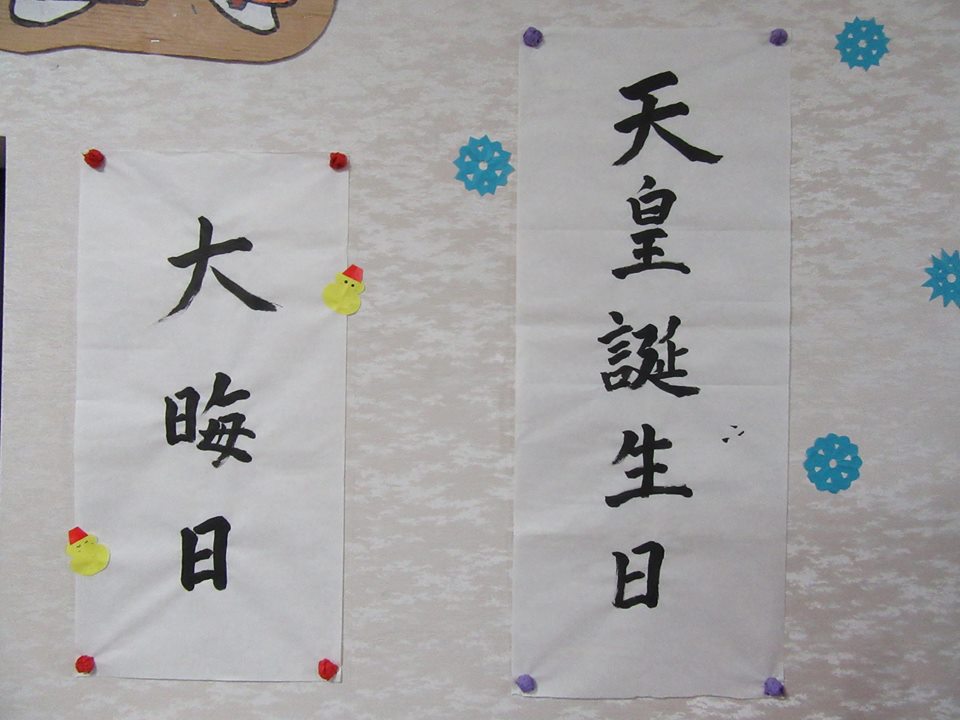 天皇誕生日
大晦日